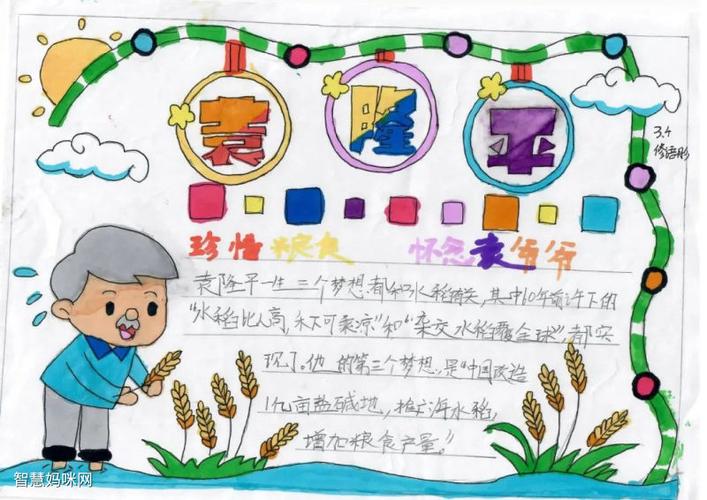 袁隆平
3.4
修语彤
珍惜粮食 怀念袁爷爷
袁隆平一生三个梦想都和水稻有关,其中10年前许下的
“水稻比人高,禾下可乘凉”和“杂交水稻覆全球”,都实
现了。他的第三个梦想,是“中国改造
1亿亩盐碱地,推广海水稻,
增加粮食产量。”
智慧妈咪网